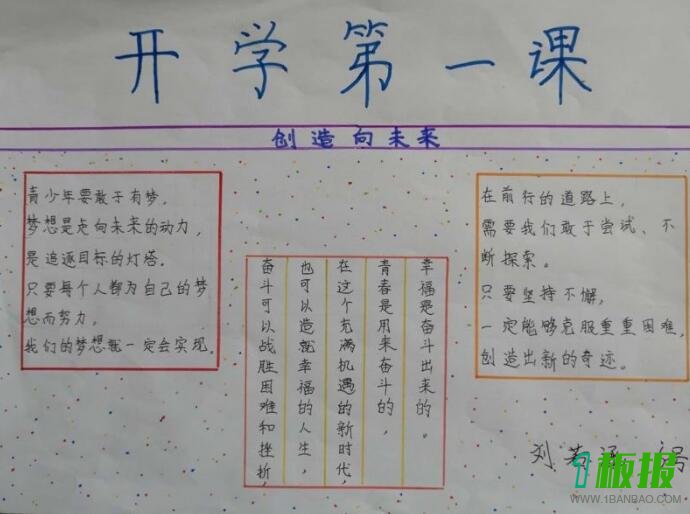 开学第一课
创造向未来
青少年要敢于有梦，
梦想是走向未来的动力，
是追逐目标的灯塔。
只要每个人都为自己的梦
想而努力，
我们的梦想就一定会实现。
奋斗可以战胜困难和挫折，
也可以造就幸福的人生，
在这个充满机遇的新时代，
青春是用来奋斗的，
幸福是奋斗出来的。
在前行的道路上，
需要我们敢于尝试、不
断探索。
只要坚持不懈，
一定能够克服重重困难，
创造出新的奇迹。
刘若
1板报
WWW.1BANBAO.COM